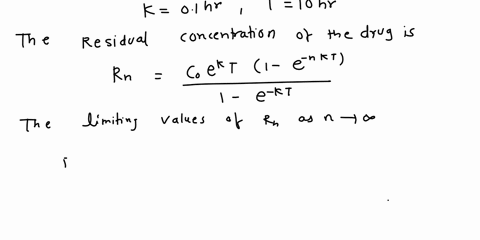 K = 0.1 hr , T = 10 hr
The Residual concentration of the drug is
Rn = C₀ e^kT (1 - e^-nKT) / 1 - e^-KT
The limiting values of Rn as n → ∞